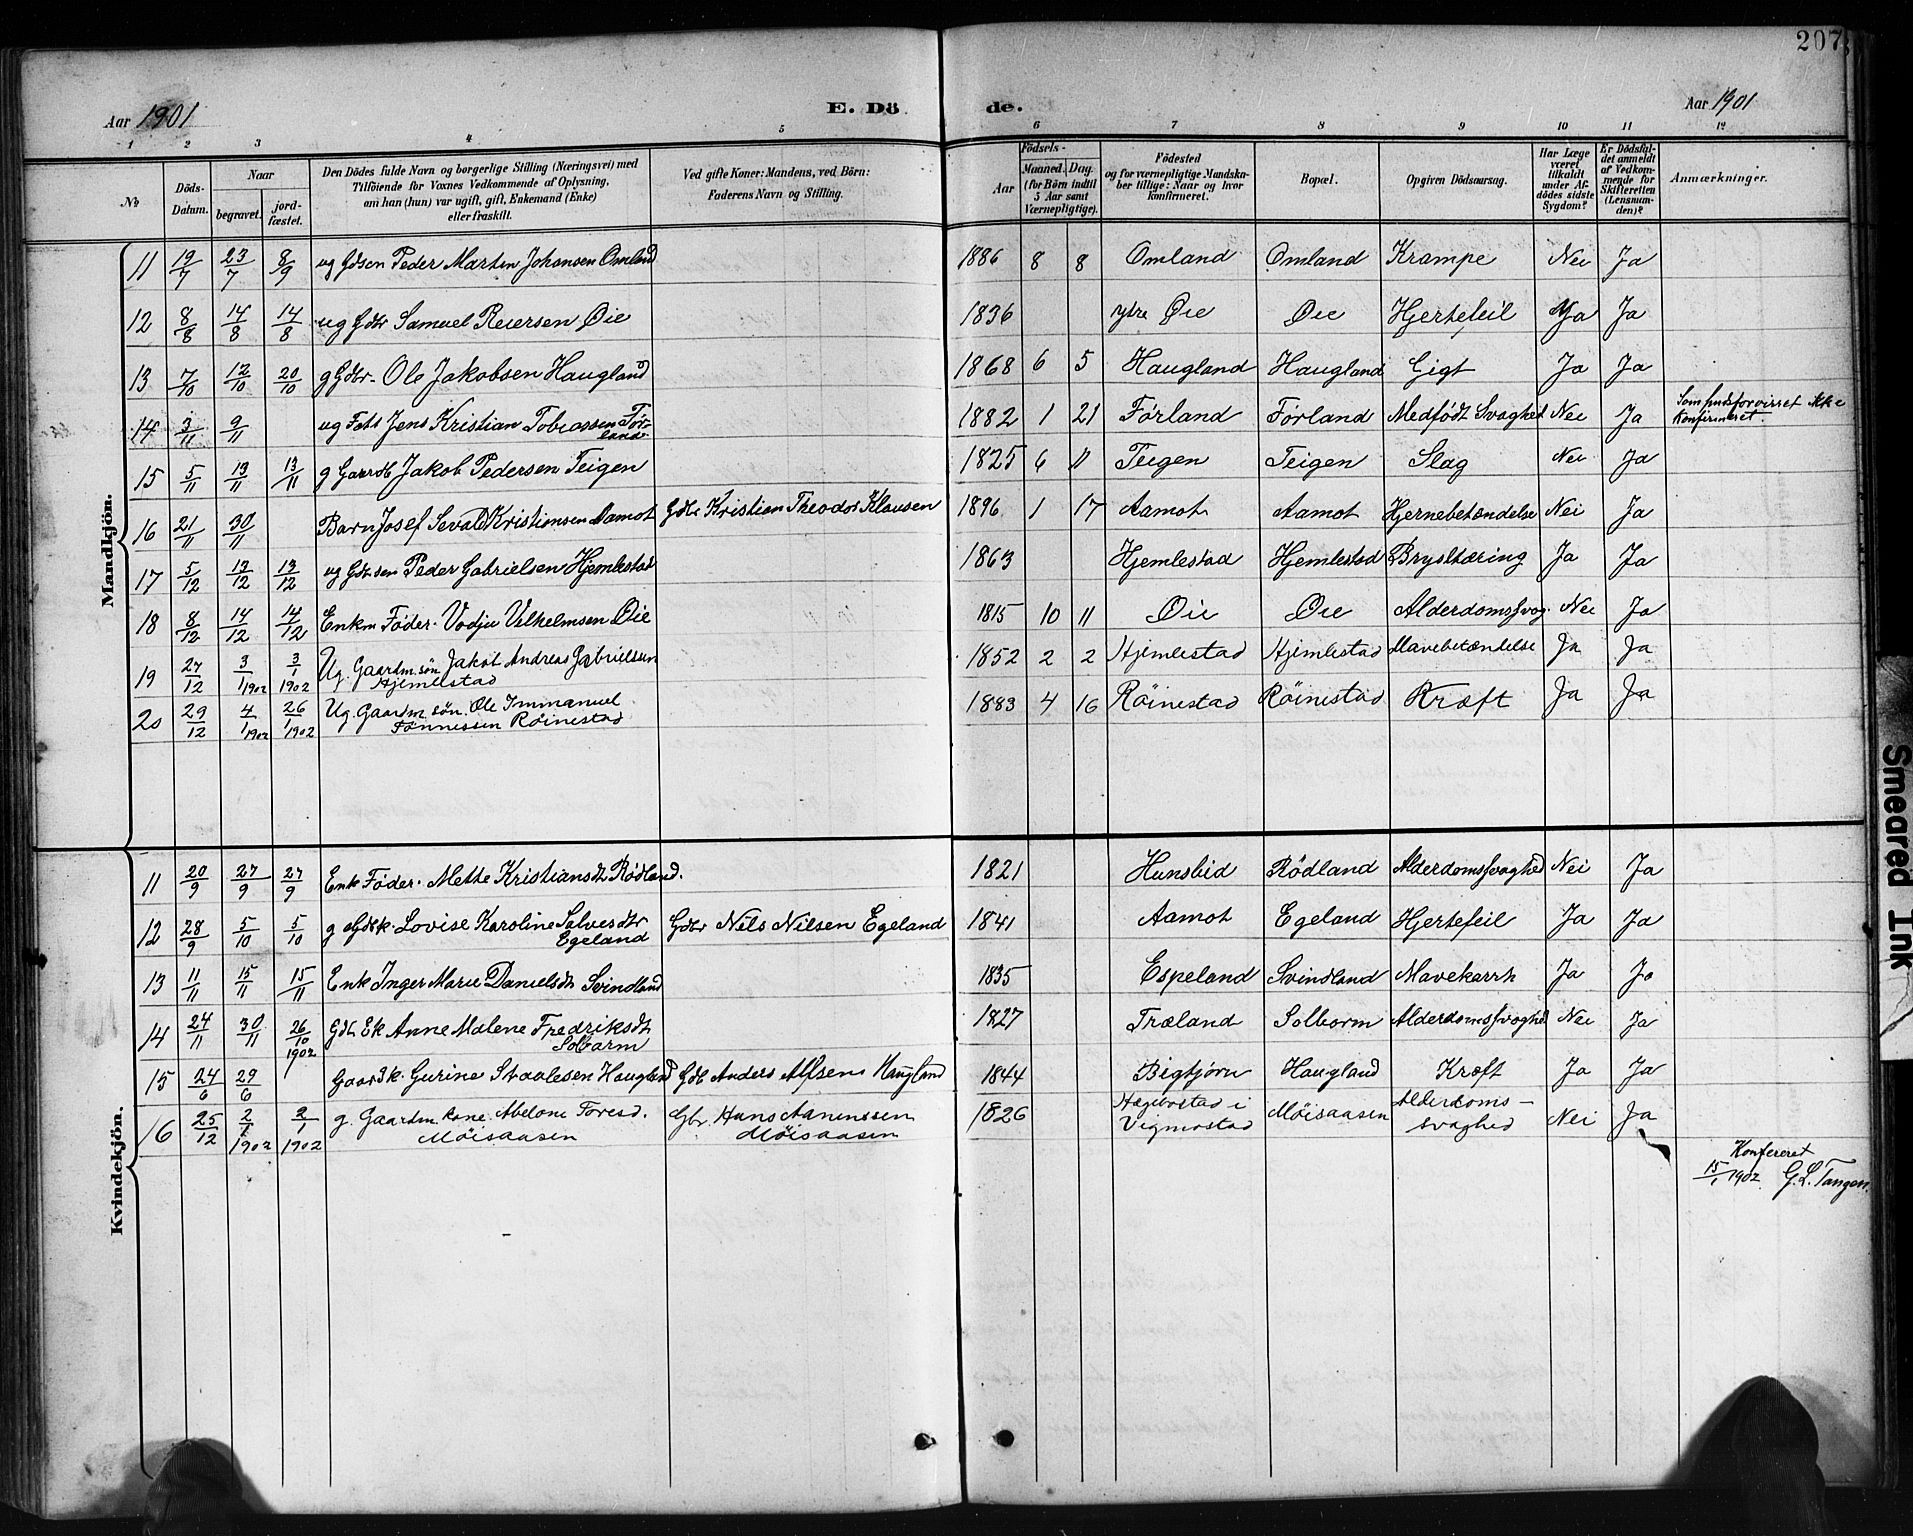 207
Aar 1901 E. Dö de. Aar 1901
1 2 3 4 5 6 7 8 9 10 11 12
No Döds-Datum. Naar begravet. jordfæstet. Den Dödes fulde Navn og borgerlige Stilling (Næringsvei) med Tilföiende for Voxnes Vedkommende af Oplysning, om han (hun) var ugift, gift, Enkemand (Enke) eller fraskilt. Ved gifte Koner: Mandens, ved Börn: Faderens Navn og Stilling. Födsels- Aar Maaned. Dag. (for Börn indtil 5 Aar samt Værnepligtige). Födested og for værnepligtige Mandskaber tillige: Naar og hvor konfirmeret. Bopæl. Opgiven Dödsaarsag. Har Læge været tilkaldt under Afdödes sidste Sygdom? Er Dödsfaldet anmeldt af Vedkommende for Skifteretten (Lensmanden)? Anmærkninger.
Mandkjön.
11 19/7 23/7 8/9 ug Gdsen Peder Martin Johansen Omland 1886 8 8 Omland Omland Krampe Nei Ja
12 8/8 14/8 14/8 ug Gdbr Samuel Reiersen Øie 1836 ytre Øie Øie Hjertefeil Ja Ja
13 7/10 12/10 20/10 g Gdbr. Ole Jakobsen Haugland 1868 6 5 Haugland Haugland Gigt Ja Ja
14 3/11 9/11 ug Fats Jens Kristian Tobiassen Förland 1882 1 21 Förland Förland Medfödt Svaghed Nei Ja Ikke Konfirmeret.
15 5/11 13/11 13/11 g Gaardb Jakob Pedersen Teigen 1825 6 11 Teigen Teigen Slag Nei Ja
16 21/11 30/11 Barn Josef Sevald Kristiansen Aamot Gdbr Kristian Theodor Klausen 1896 1 17 Aamot Aamot Hjernebetændelse Nei Ja
17 5/12 13/12 13/12 ug Gdbr sen Peder Gabrielsen Hjemlestad 1863 Hjemlestad Hjemlestad Brysttæring Ja Ja
18 8/12 14/12 14/12 Enkm Föder. Vodju Vilhelmsen Øie 1815 10 11 Øie Øie Alderdomssvag. Nei Ja
19 27/12 3/1 1902 3/1 1902 Ug. Gaardm. sön Jakob Andreas Gabrielsen Hjemlestad 1852 2 2 Hjemlestad Hjemlestad Mavebetændelse Ja Ja
20 29/12 4/1 1902 26/1 1902 Ug. Gaardm sön. Ole Immanuel Tönnessen Röinestad 1883 4 16 Röinestad Röinestad Kræft Ja Ja
Kvindekjön.
11 20/9 27/9 27/9 Enk Föder. Mette Kristiansdt Rødland. 1821 Hunsbid Rödland Alderdomssvaghed Nei Ja
12 28/9 5/10 5/10 g Gdbk. Lovise Karoline Salvesdtr Egeland Gdbr Nils Nilsen Egeland 1841 Aamot Egeland Hjertefeil Ja Ja
13 11/11 15/11 15/11 Enk Inger Marie Danielsdt Svindland 1835 Espeland Svindland Mavekarrh Ja Ja
14 24/11 30/11 26/10 1902 Gdb Ek Anne Malene Fredriksdt Solbarm 1827 Træland Solborm Alderdomssvaghed Nei Ja
15 24/6 29/6 Gaardk. Gurine Staalesen Haugland Gdb Anders Alfsen Haugland 1844 Bigtjörn Haugland Kræft Ja Ja
16 25/12 2/1 1902 2/1 1902 g. Gaardm kone Abelone Toresd. Möisaasen Gbr. Hans Aanenssen Möisaasen 1826 Hægebostad i Vigmostad Möisaasen Alderdoms-svaghed Nei Ja
Konfereret
15/1 1902 G. L. Tangen.
Smeared Ink